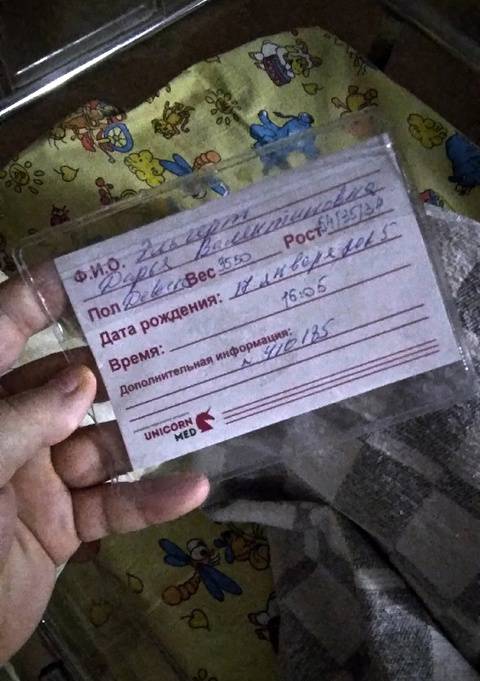 Ф.И.О. Эльберт
Дарья Валентиновна
Пол Вес 3550 Рост 54/35/34
Дата рождения: 17 января 2015
Время: 16:05
Дополнительная информация:
410185
UNICORN
MED